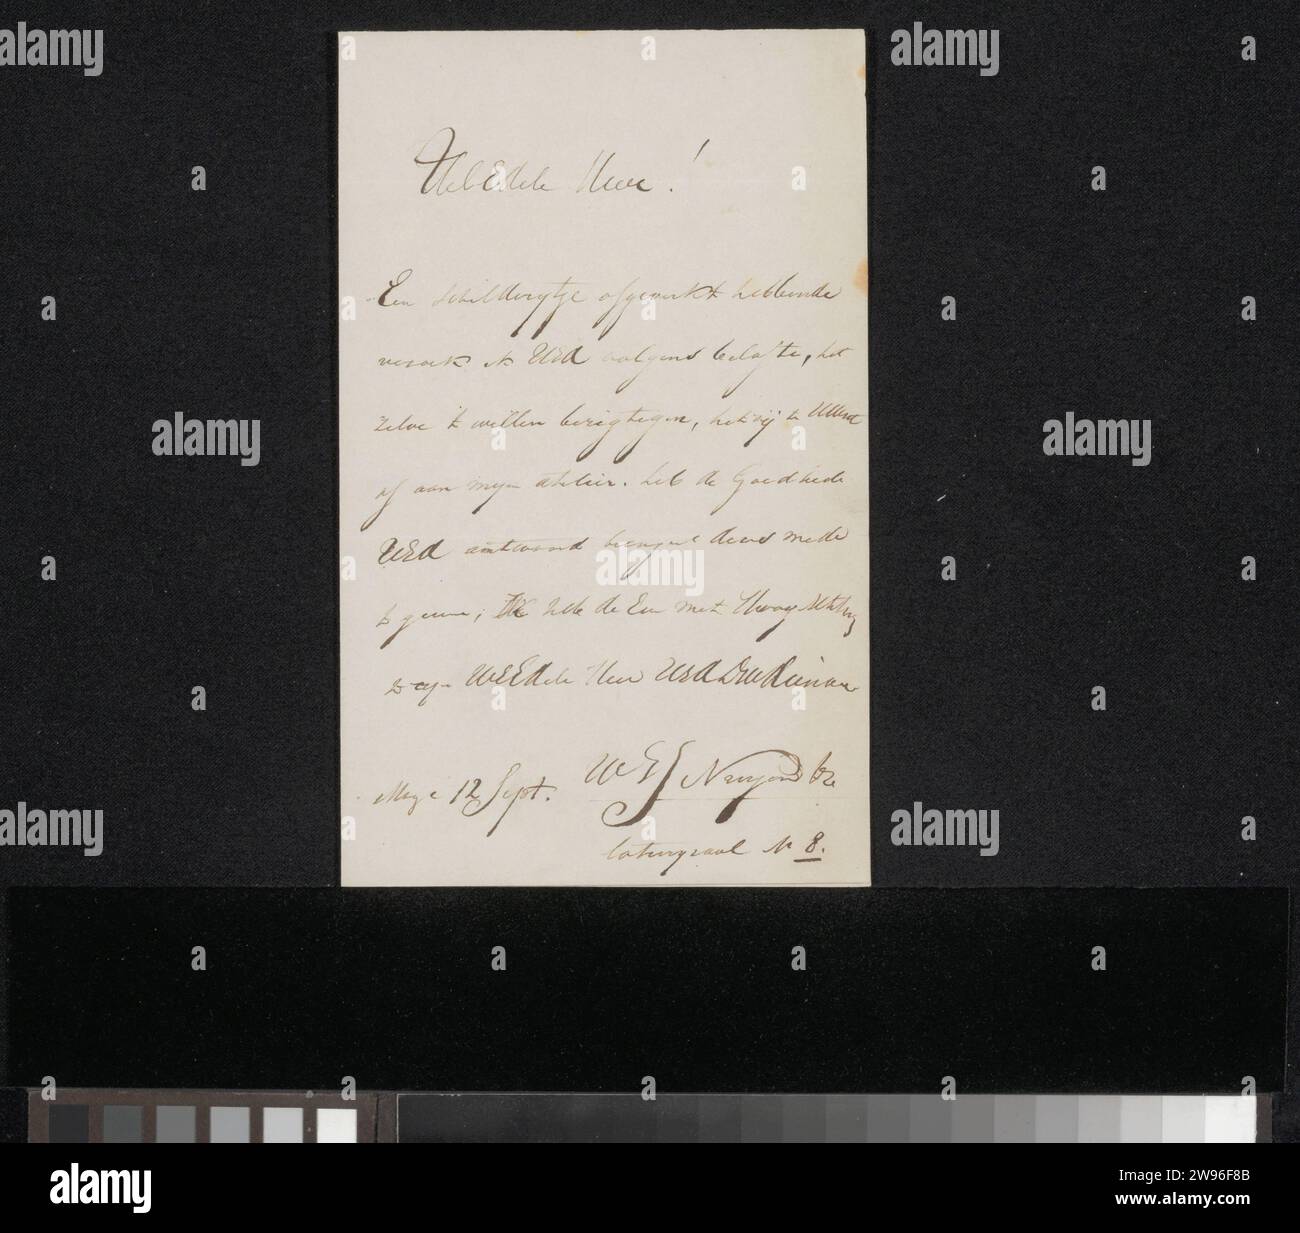 WelEdele Heer!
Een schilderijtje afgewerkt hebbende
verzoek ik UEd volgens belofte, het
zelve te willen bezigtegen, het zij te
of aan mijn atelier. heb de Goedheid
UEd antwoord brenger dezes mede
te geven; Ik heb de Eer met Hoog Achting
te zijn WelEdele Heer UEd DW Dienaar
Hage 12 Sept. W J J Nuyen
No 8.
alamy
Image ID: 2W96F8B
www.alamy.com